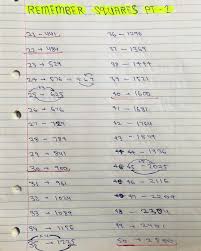 REMEMBER SQUARES PT-2
21 → 441
22 → 484
23 → 529
24 → 576
25 → 625
26 → 676
27 → 729
28 → 784
29 → 841
30 → 900
31 → 961
32 → 1024
33 → 1089
34 → 1156
1225
36 → 1296
37 → 1369
38 → 1444
39 → 1521
40 → 1600
41 → 1681
42 → 1764
43 → 1849
44 → 1936
45 → 2025
46 → 2116
48 → 2304
50 → 2500